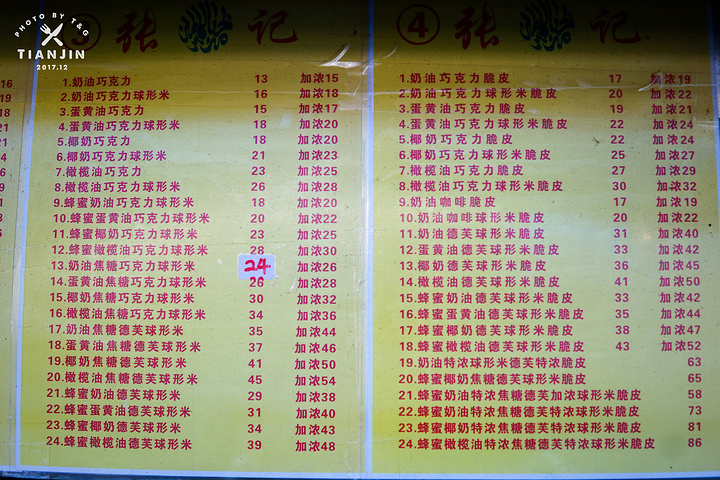 PHOTO BY T&G
TIANJIN
2017.12
③ 张 记
1.奶油巧克力 13 加浓15
2.奶油巧克力球形米 16 加浓18
3.蛋黄油巧克力 15 加浓17
4.蛋黄油巧克力球形米 18 加浓20
5.椰奶巧克力 18 加浓20
6.椰奶巧克力球形米 21 加浓23
7.橄榄油巧克力 23 加浓25
8.橄榄油巧克力球形米 26 加浓28
9.蜂蜜奶油巧克力球形米 18 加浓20
10.蜂蜜蛋黄油巧克力球形米 20 加浓22
11.蜂蜜椰奶巧克力球形米 23 加浓25
12.蜂蜜橄榄油巧克力球形米 28 加浓30
13.奶油焦糖巧克力球形米 24 加浓26
14.蛋黄油焦糖巧克力球形米 26 加浓28
15.椰奶焦糖巧克力球形米 30 加浓32
16.橄榄油焦糖巧克力球形米 34 加浓36
17.奶油焦糖德芙球形米 35 加浓44
18.蛋黄油焦糖德芙球形米 37 加浓46
19.椰奶焦糖德芙球形米 41 加浓50
20.橄榄油焦糖德芙球形米 45 加浓54
21.蜂蜜奶油德芙球形米 29 加浓38
22.蜂蜜蛋黄油德芙球形米 31 加浓40
23.蜂蜜椰奶德芙球形米 34 加浓43
24.蜂蜜橄榄油德芙球形米 39 加浓48
④ 张 记
1.奶油巧克力脆皮 17 加浓19
2.奶油巧克力球形米脆皮 20 加浓22
3.蛋黄油巧克力脆皮 19 加浓21
4.蛋黄油巧克力球形米脆皮 22 加浓24
5.椰奶巧克力脆皮 22 加浓24
6.椰奶巧克力球形米脆皮 25 加浓27
7.橄榄油巧克力脆皮 27 加浓29
8.橄榄油巧克力球形米脆皮 30 加浓32
9.奶油咖啡脆皮 17 加浓19
10.奶油咖啡球形米脆皮 20 加浓22
11.奶油德芙球形米脆皮 31 加浓40
12.蛋黄油德芙球形米脆皮 33 加浓42
13.椰奶德芙球形米脆皮 36 加浓45
14.橄榄油德芙球形米脆皮 41 加浓50
15.蜂蜜奶油德芙球形米脆皮 33 加浓42
16.蜂蜜蛋黄油德芙球形米脆皮 35 加浓44
17.蜂蜜椰奶德芙球形米脆皮 38 加浓47
18.蜂蜜橄榄油德芙球形米脆皮 43 加浓52
19.奶油特浓球形米德芙特浓脆皮 63
20.蜂蜜椰奶焦糖德芙球形米脆皮 65
21.蜂蜜奶油特浓焦糖德芙加浓球形米脆皮 58
22.蜂蜜奶油特浓焦糖德芙特浓球形米脆皮 73
23.蜂蜜椰奶特浓焦糖德芙特浓球形米脆皮 81
24.蜂蜜橄榄油特浓焦糖德芙特浓球形米脆皮 86